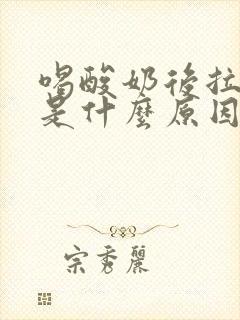 喝酸奶後拉
是什麼原因
宗秀麗